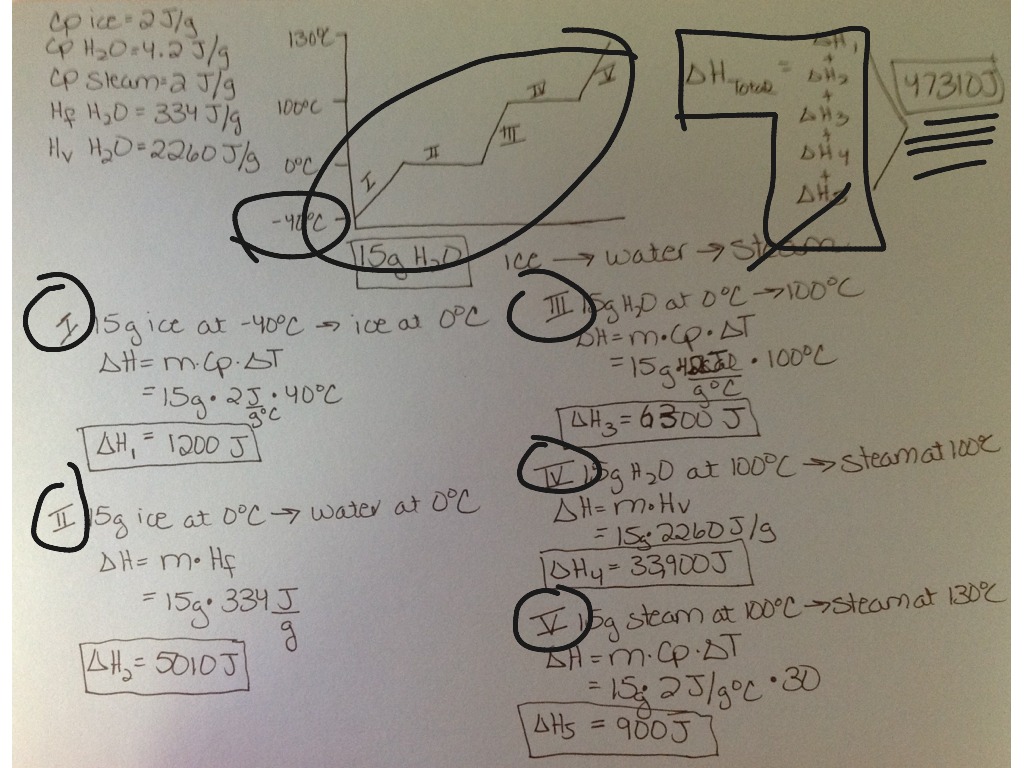 Cp ice = 2 J/g
Cp H₂O = 4.2 J/g
Cp Steam = 2 J/g
Hf H₂O = 334 J/g
Hv H₂O = 2260 J/g
130°C
100°C
0°C
-40°C
I
II
III
IV
V
15g H₂O
ΔH Total = ΔH₁ + ΔH₂ + ΔH₃ + ΔH₄ + ΔH₅
47310J
ice → water → steam
I 15g ice at -40°C → ice at 0°C
ΔH = m·Cp·ΔT
= 15g · 2 J/g°C · 40°C
ΔH₁ = 1200 J
II 15g ice at 0°C → water at 0°C
ΔH = m·Hf
= 15g · 334 J/g
ΔH₂ = 5010 J
III 15g H₂O at 0°C → 100°C
ΔH = m·Cp·ΔT
= 15g · g°C · 100°C
ΔH₃ = 6300 J
IV 15g H₂O at 100°C → steam at 100°C
ΔH = m·Hv
= 15g · 2260 J/g
ΔH₄ = 33,900 J
V 15g steam at 100°C → steam at 130°C
ΔH = m·Cp·ΔT
= 15g · 2 J/g°C · 30
ΔH₅ = 900 J